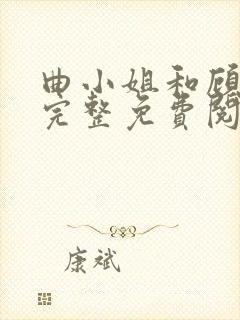 曲小姐和顾
完整免費閱
康斌